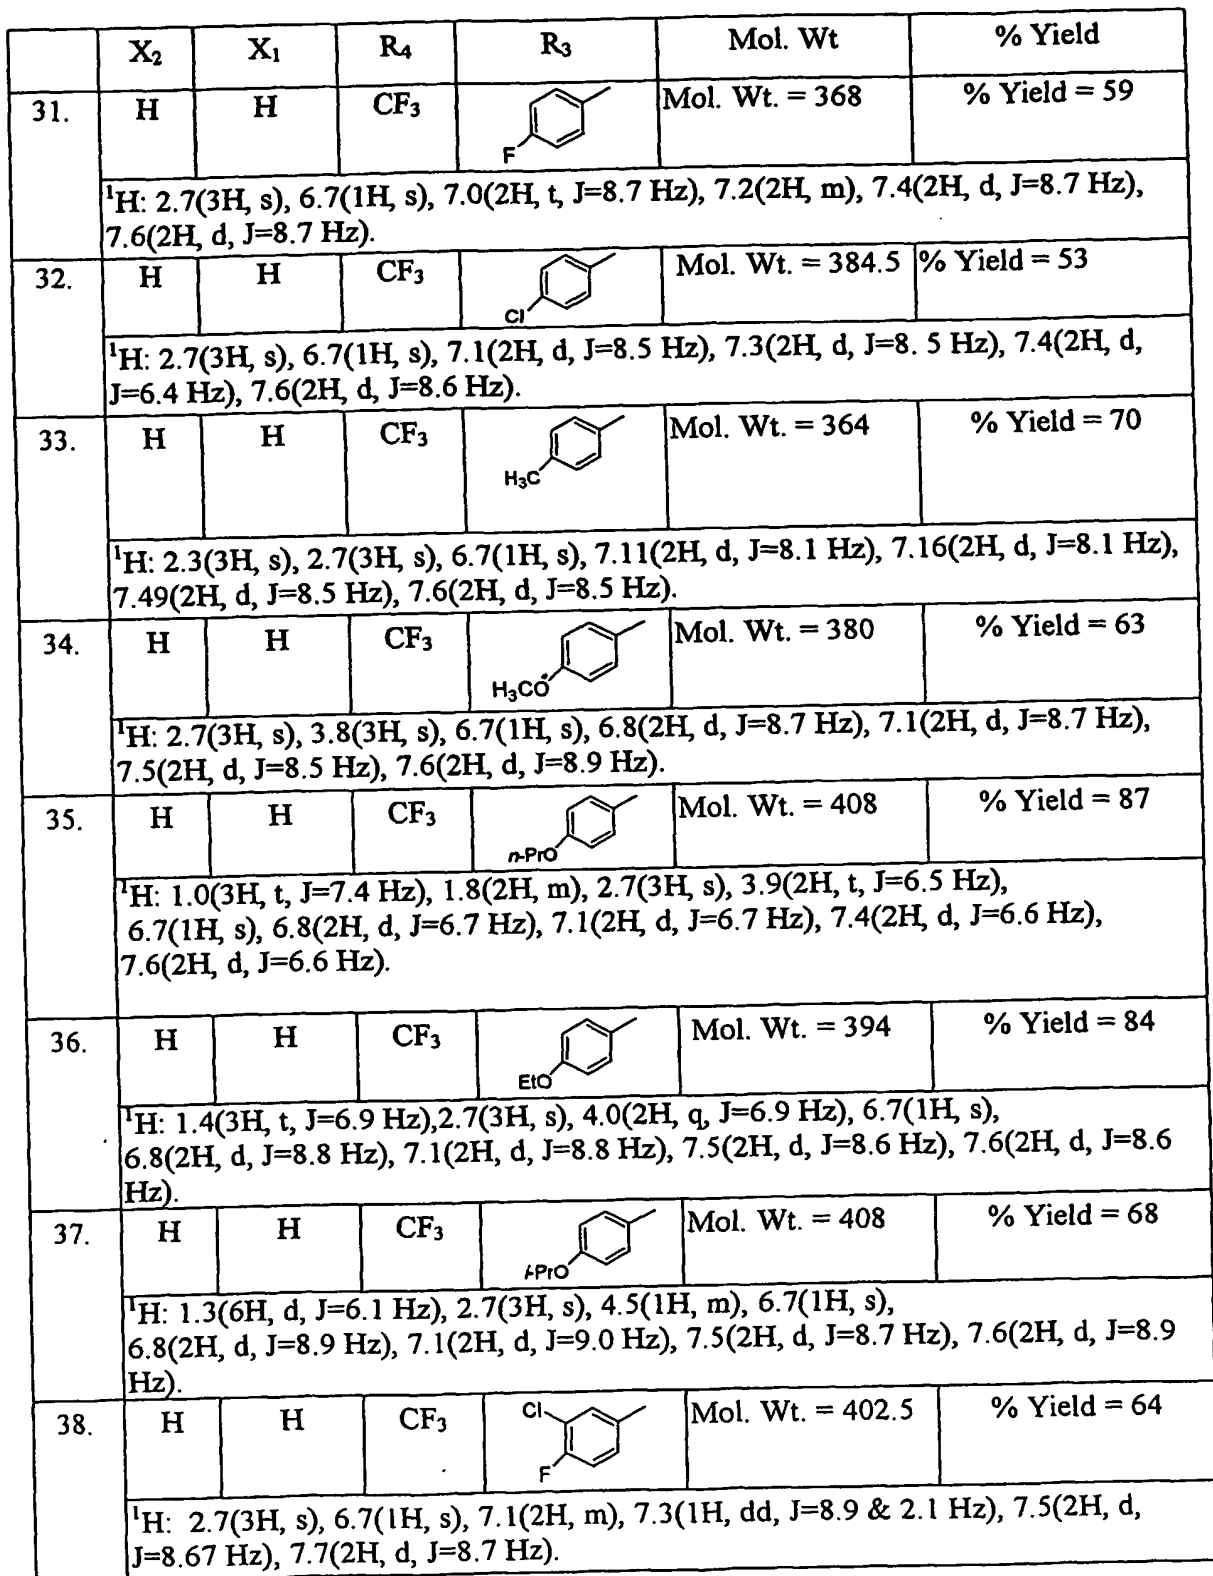 X₂ X₁ R₄ R₃ Mol. Wt % Yield
31. H H CF₃ F Mol. Wt. = 368 % Yield = 59
¹H: 2.7(3H, s), 6.7(1H, s), 7.0(2H, t, J=8.7 Hz), 7.2(2H, m), 7.4(2H, d, J=8.7 Hz),
7.6(2H, d, J=8.7 Hz).
32. H H CF₃ Cl Mol. Wt. = 384.5 % Yield = 53
¹H: 2.7(3H, s), 6.7(1H, s), 7.1(2H, d, J=8.5 Hz), 7.3(2H, d, J=8. 5 Hz), 7.4(2H, d,
J=6.4 Hz), 7.6(2H, d, J=8.6 Hz).
33. H H CF₃ H₃C Mol. Wt. = 364 % Yield = 70
¹H: 2.3(3H, s), 2.7(3H, s), 6.7(1H, s), 7.11(2H, d, J=8.1 Hz), 7.16(2H, d, J=8.1 Hz),
7.49(2H, d, J=8.5 Hz), 7.6(2H, d, J=8.5 Hz).
34. H H CF₃ H₃CO Mol. Wt. = 380 % Yield = 63
¹H: 2.7(3H, s), 3.8(3H, s), 6.7(1H, s), 6.8(2H, d, J=8.7 Hz), 7.1(2H, d, J=8.7 Hz),
7.5(2H, d, J=8.5 Hz), 7.6(2H, d, J=8.9 Hz).
35. H H CF₃ n-PrO Mol. Wt. = 408 % Yield = 87
¹H: 1.0(3H, t, J=7.4 Hz), 1.8(2H, m), 2.7(3H, s), 3.9(2H, t, J=6.5 Hz),
6.7(1H, s), 6.8(2H, d, J=6.7 Hz), 7.1(2H, d, J=6.7 Hz), 7.4(2H, d, J=6.6 Hz),
7.6(2H, d, J=6.6 Hz).
36. H H CF₃ EtO Mol. Wt. = 394 % Yield = 84
¹H: 1.4(3H, t, J=6.9 Hz),2.7(3H, s), 4.0(2H, q, J=6.9 Hz), 6.7(1H, s),
6.8(2H, d, J=8.8 Hz), 7.1(2H, d, J=8.8 Hz), 7.5(2H, d, J=8.6 Hz), 7.6(2H, d, J=8.6
Hz).
37. H H CF₃ i-PrO Mol. Wt. = 408 % Yield = 68
¹H: 1.3(6H, d, J=6.1 Hz), 2.7(3H, s), 4.5(1H, m), 6.7(1H, s),
6.8(2H, d, J=8.9 Hz), 7.1(2H, d, J=9.0 Hz), 7.5(2H, d, J=8.7 Hz), 7.6(2H, d, J=8.9
Hz).
38. H H CF₃ Cl F Mol. Wt. = 402.5 % Yield = 64
¹H: 2.7(3H, s), 6.7(1H, s), 7.1(2H, m), 7.3(1H, dd, J=8.9 & 2.1 Hz), 7.5(2H, d,
J=8.67 Hz), 7.7(2H, d, J=8.7 Hz).